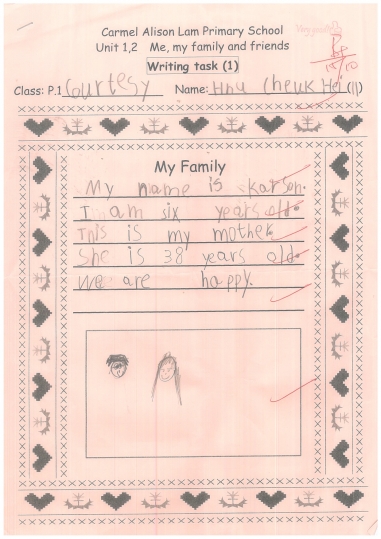 Carmel Alison Lam Primary School
Unit 1,2 Me, my family and friends
Writing task (1)
Class: P.1 Courtesy Name: Cheuk Hei (11)
My Family
My name is Karson.
I am six years old.
This is my mother.
She is 38 years old.
We are happy.